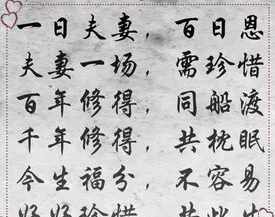 一日夫妻，百日恩
夫妻一场，需珍惜
百年修得，同船渡
千年修得，共枕眠
今生福分，不容易
好好珍惜